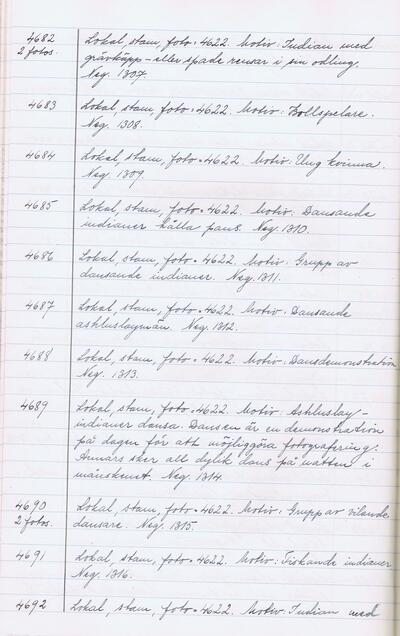 4682 Lokal, stam, foto = 4622. Motiv: Indian med
2 fotos. grävkäpp - eller spade rensar i sin odling.
Neg. 1307.
4683 Lokal, stam, foto = 4622. Motiv: Bollspelare.
Neg. 1308.
4684 Lokal, stam, foto = 4622. Motiv: Ung kvinna.
Neg. 1309.
4685 Lokal, stam, foto = 4622. Motiv: Dansande
indianer hålla paus. Neg. 1310.
4686 Lokal, stam, foto = 4622. Motiv: Grupp av
dansande indianer. Neg. 1311.
4687 Lokal, stam, foto = 4622. Motiv: Dansande
ashluslaymän. Neg. 1312.
4688 Lokal, stam, foto = 4622. Motiv: Dansdemonstration
Neg. 1313.
4689 Lokal, stam, foto = 4622. Motiv: Ashluslay-
indianer dansa. Dansen är en demonstration
på dagen för att möjliggöra fotografering.
Annars sker all dylik dans på natten i
månskenet. Neg. 1314.
4690 Lokal, stam, foto = 4622. Motiv: Grupp av vilande
2 fotos. dansare. Neg. 1315.
4691 Lokal, stam, foto = 4622. Motiv: Fiskande indianer
Neg. 1316.
4692 Lokal, stam, foto = 4622. Motiv: Indian med